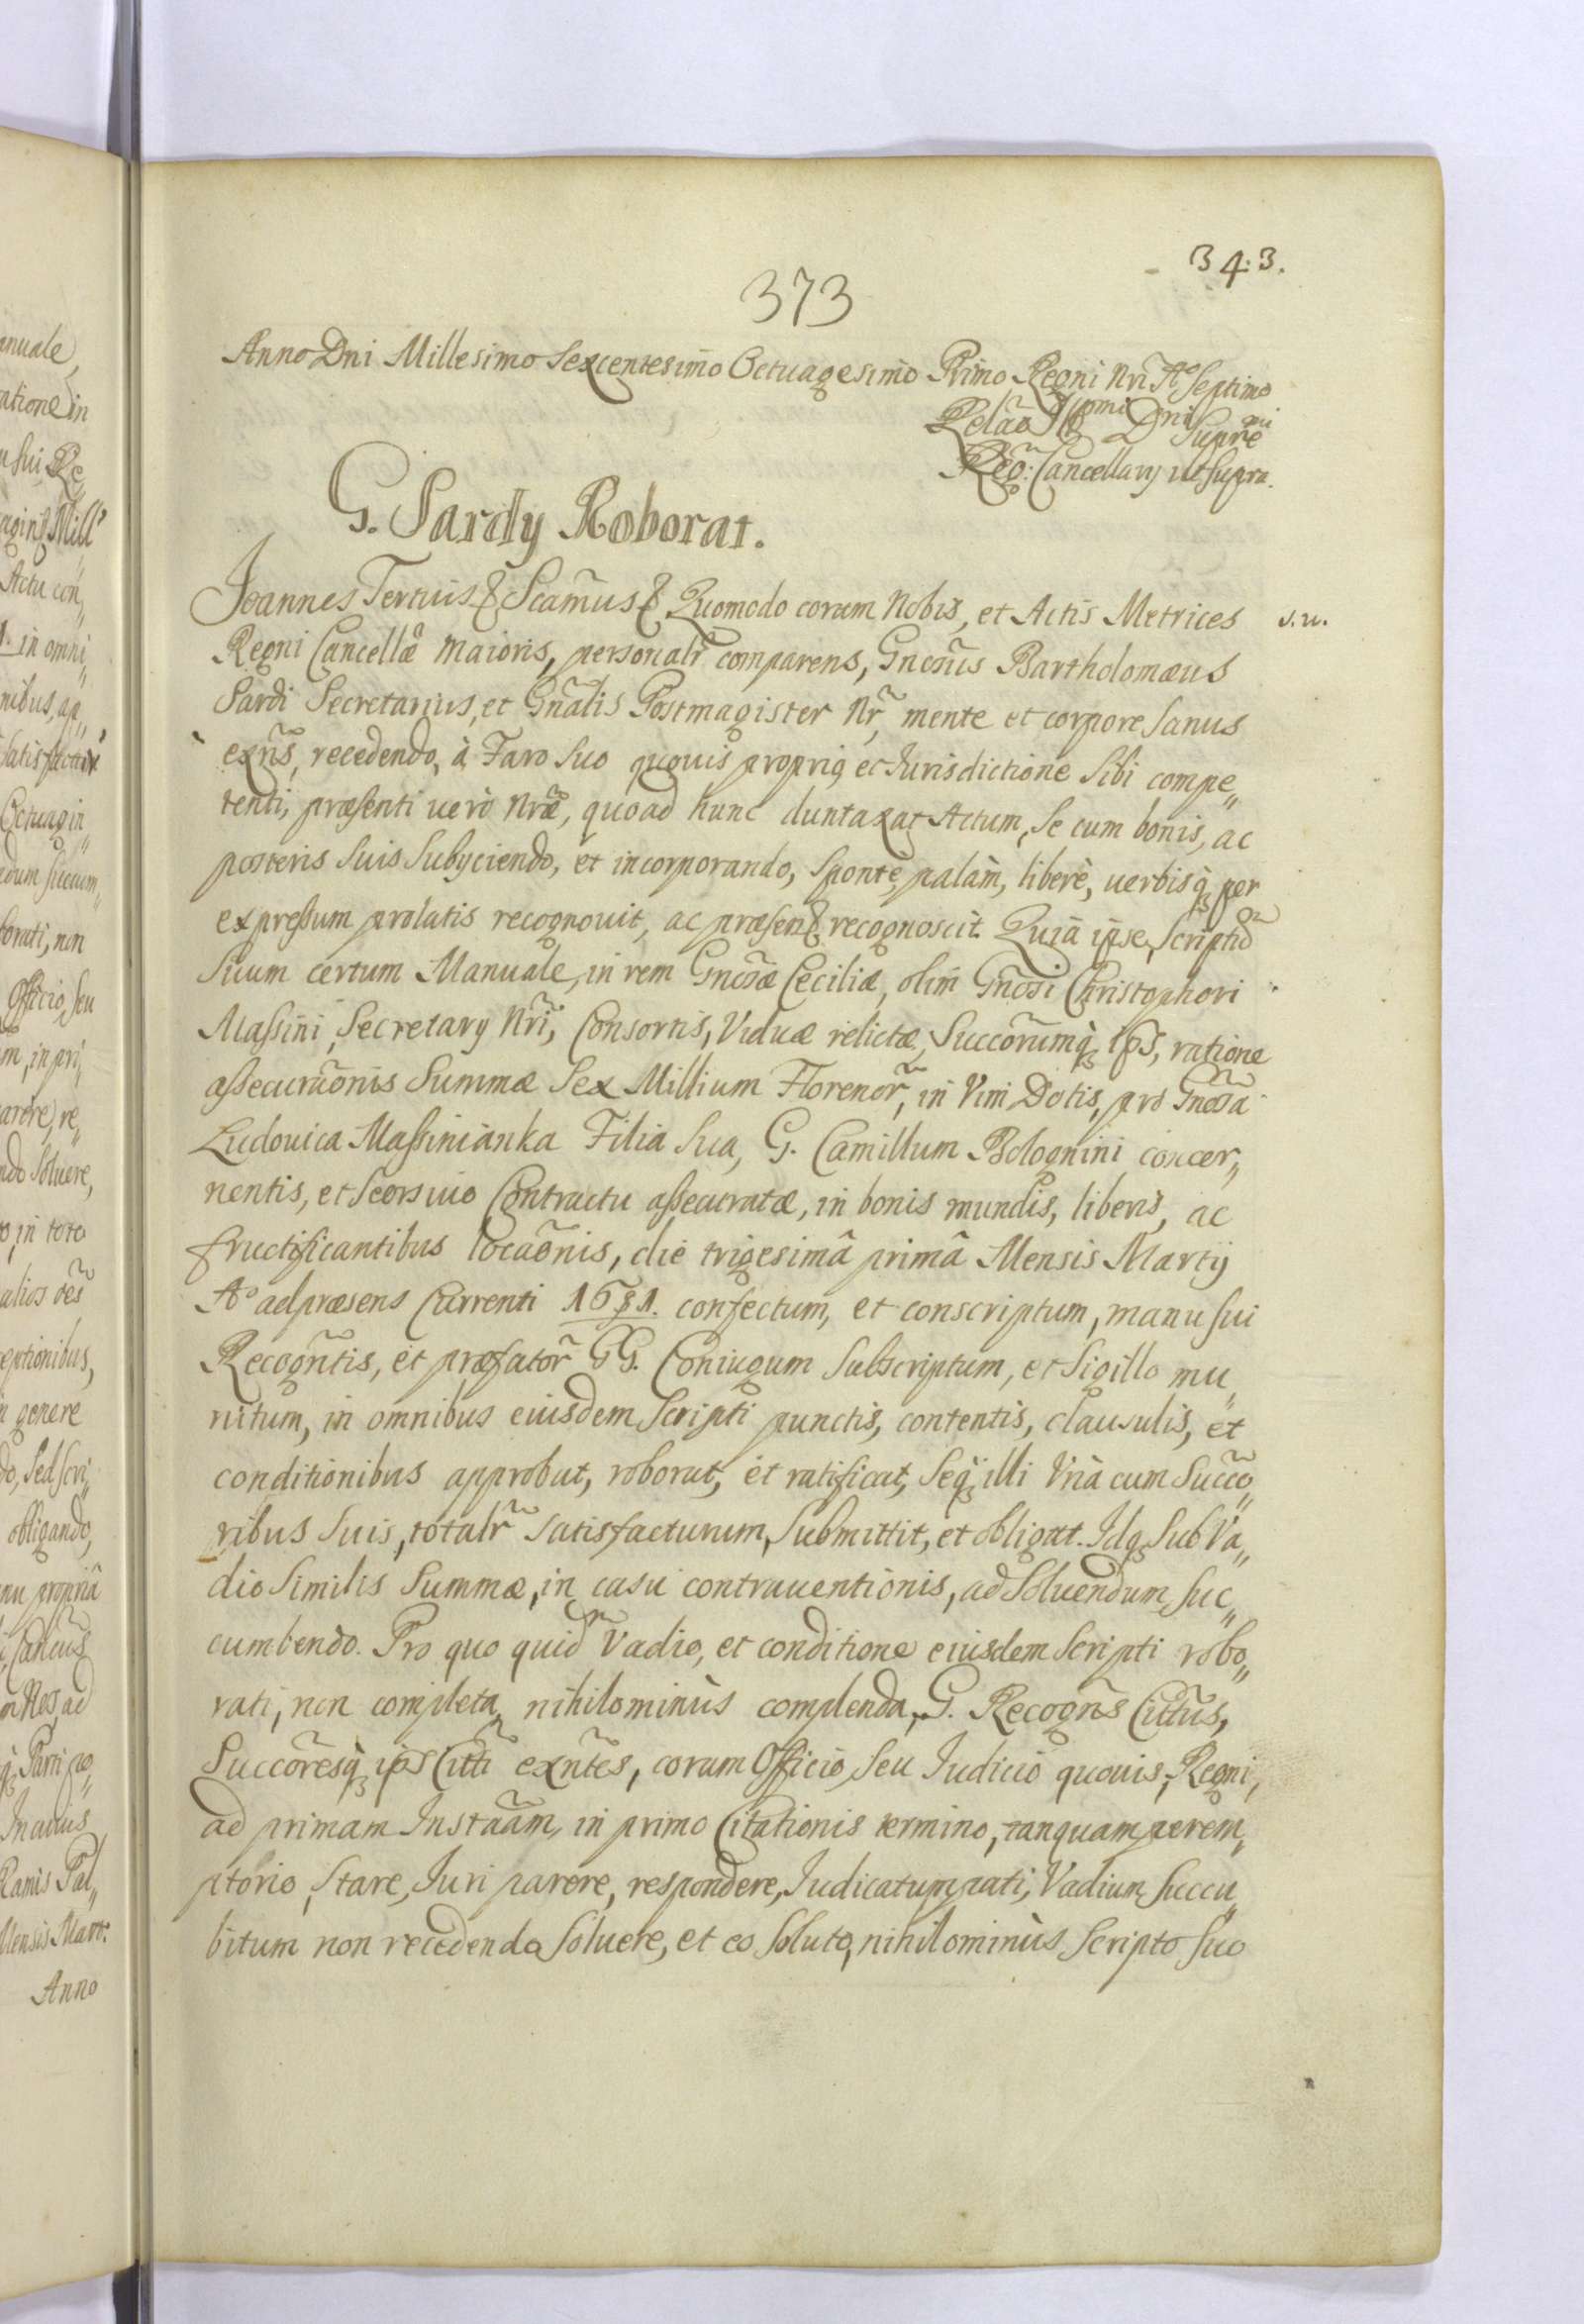 343.
373
Anno Dni Millesimo Sexcentesimo Octuagesimo Primo Regni Nri Ao Septimo
Relão Illmi Dni Supremi
Reg: Cancellarij ut supra.
G. Sardy Roborat.
Joannes Tertius & Scamus & Quomodo coram Nobis, et Actis Metrices
s. u.
Regni Cancellæ Maioris, personalr comparens, Gnosus Bartholomæus
Sardi Secretarius, et Gnalis Postmagister Nr, mente et corpore sanus
exns, recedendo, à Faro suo quouis proprio et Iurisdictione sibi compe„
tenti, præsenti uerò Nræ, quoad hunc duntaxat Actum, se cum bonis, ac
posteris suis subijciendo, et incorporando, sponte, palàm, liberè, uerbisq per
expressum prolatis recognouit, ac præsen& recognoscit. Quia ipse, scriptũ
suum certum Manuale, in rem Gnosæ Ceciliæ, olim Gnosi Christophori
Massini, Secretary Nri, Consortis, Viduæ relictæ, Succorumq ips, ratione
assecuraõnis Summæ Sex Millium Florenor, in Vim Dotis, pro Gnosa
Ludouica Massinianka Filia sua, G. Camillum Bolognini concer„
nentis, et seorsiuo Contractu assecuratæ, in bonis mundis, liberis, ac
fructificantibus locaõnis, die trigesimâ primâ Mensis Martij
Ao ad præsens Currenti 1681. confectum, et conscriptum, manu sui
Recogntis, et præfator GG. Coniugum subscriptum, et sigillo mu„
nitum, in omnibus eiusdem Scripti punctis, contentis, clausulis, et
conditionibus approbat, roborat, et ratificat, seq illi Unà cum Succo„
ribus suis, totalr satisfacturum, submittit, et obligat. Idq sub Va„
dio similis Summæ, in casu contrauentionis, ad soluendum suc„
cumbendo. Pro quo quid Vadio, et conditione eiusdem Scripti robo„
rati, non completa, nihilominùs complenda, G. Recogns Cittus,
Succoresq ips Citti exntes, coram Officio, seu Iudicio quouis, Regni,
ad primam Instaãm, in primo Citationis termino, tanquam perem„
ptorio, stare, Iuri parere, respondere, Iudicatum pati, Vadium succu„
bitum non recedendo soluere, et eo soluto, nihilominùs scripto suo